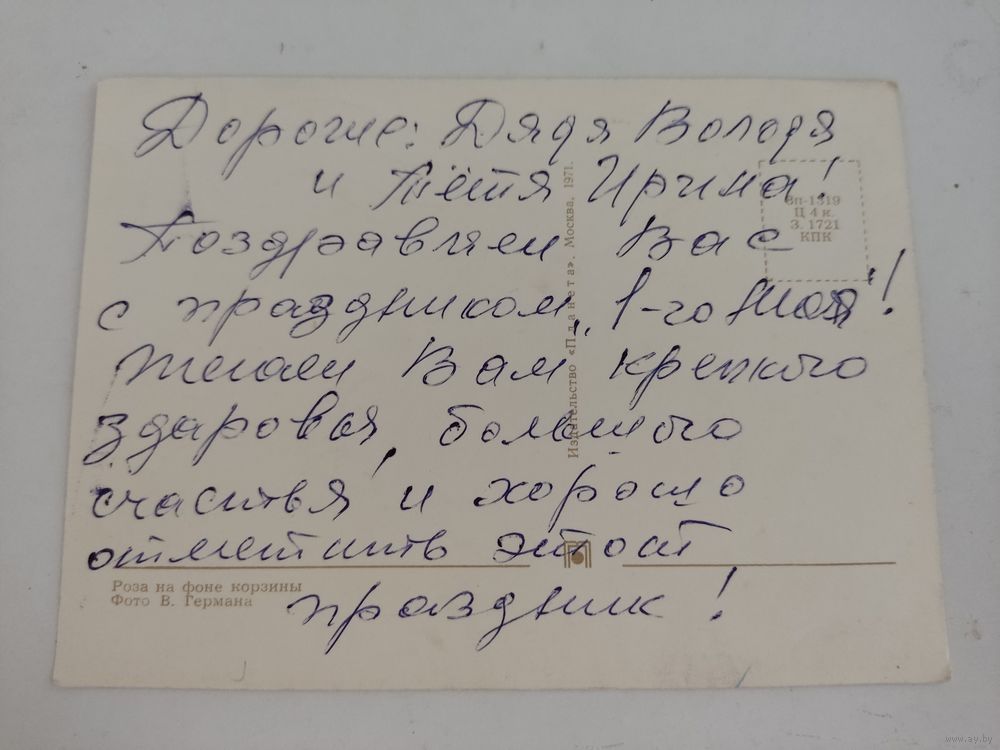 Дорогие: Дядя Володя
и Тётя Ирина!
Поздравляем Вас
с праздником „1-го Мая"!
Желаем Вам крепкого
здаровья, большого
счастья и хорошо
отметить этот
праздник!
Издательство «Планета». Москва, 1971.
Зп-1319
Ц 4 к.
З. 1721
КПК
Роза на фоне корзины
Фото В. Германа
www.ay.by